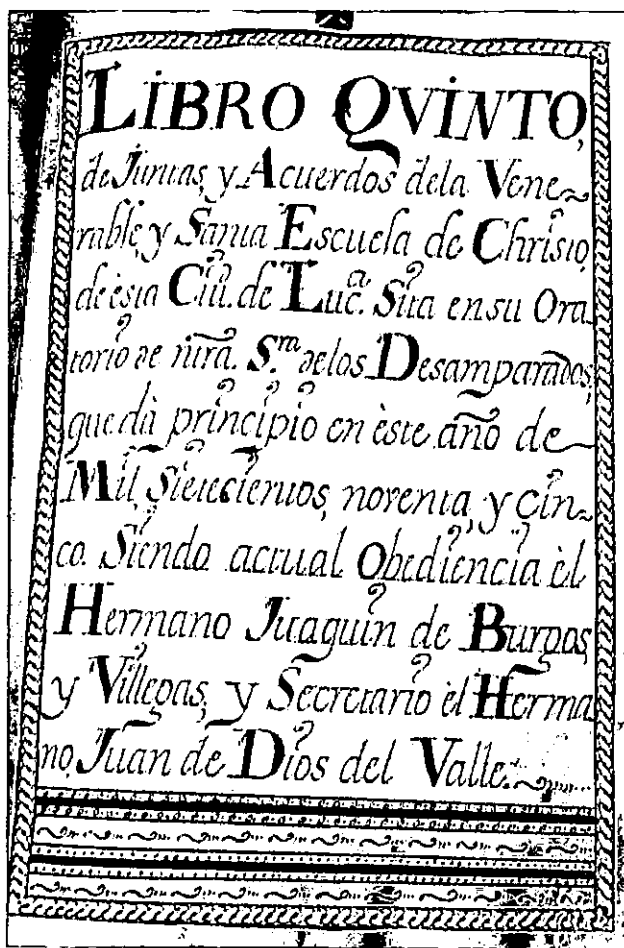 LIBRO QVINTO,
de Juntas, y Acuerdos dela Vene~
rable, y Santa Escuela de Christo,
de ésta Ciu. de Luc.ª Sita en su Ora
torio de ntra. S.ra delos Desamparados,
que dà principio en èste año de
Mil, Sietecientos, noventa, y Cin~
co. Siendo actual Obediencia èl
Hermano Juaquin de Burgos,
y Villegas, y Secretario èl Herma
no, Juan de Dios del Valle.